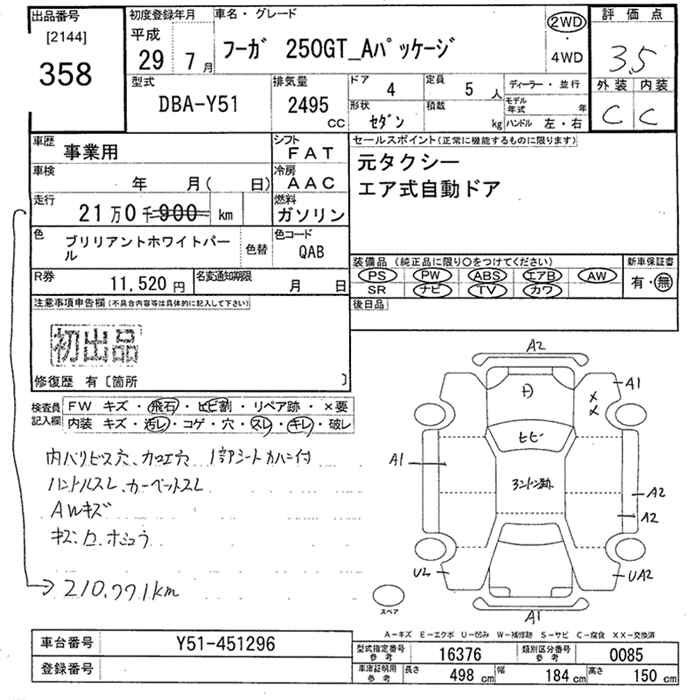 出品番号
[2144]
358
初度登録年月
平成
29 7月
車名・グレード
フーガ 250GT_Aパッケージ
2WD
・
4WD
評価点
3.5
外装 内装
C C
型式
DBA-Y51
排気量
2495
CC
ドア 4
定員 5 人
形状 セダン
積載 kg
ディーラー・並行
モデル年式 年
ハンドル 左・右
車歴 事業用
シフト FAT
車検 年 月( 日)
冷房 AAC
走行 21万0千900 km
燃料 ガソリン
色 ブリリアントホワイトパール
色替
色コード QAB
R券 11,520円
名変通知期限 月 日
セールスポイント(正常に機能するものに限ります)
元タクシー
エア式自動ドア
装備品 (純正品に限り○をつけてください)
PS PW ABS エアB AW
SR ナビ TV カワ
新車保証書
有・無
後日品
注意事項申告欄(不具合内容等は具体的に記入して下さい)
初出品
修復歴 有〔箇所 〕
検査員記入欄
FW キズ・飛石・ヒビ割・リペア跡・×要
内装 キズ・汚レ・コゲ・穴・スレ・キレ・破レ
内ハリビス穴、カコエ穴
ハンドルスレ、カーペットスレ
AWキズ
210,771km
A2
A1
ヒビ
A1
A2
A2
U2
UA2
A1
スペア
A-キズ E-エクボ U-凹み W-補修跡 S-サビ C-腐食 XX-交換済
車台番号 Y51-451296
登録番号
型式指定番号 参考 16376
類別区分番号 参考 0085
車庫証明用 参考 長さ 498 cm 幅 184 cm 高さ 150 cm